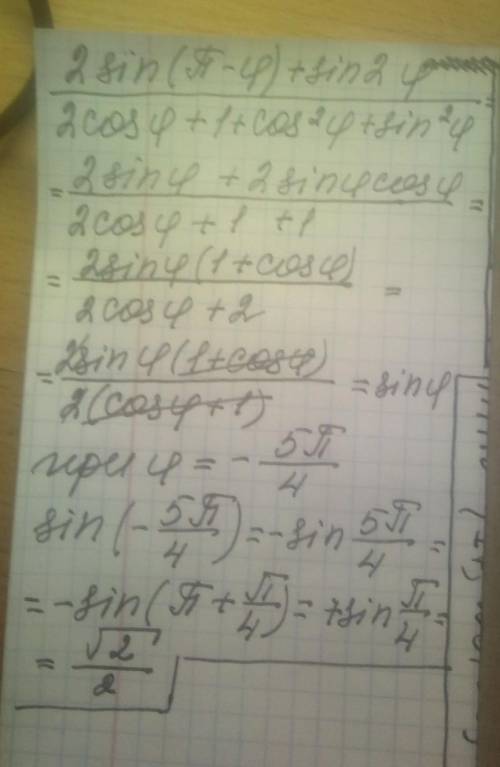 2sin(π-φ)+sin2φ
2cosφ+1+cos²φ+sin²φ =
= 2sinφ + 2sinφcosφ
2cosφ+1 +1 =
= 2sinφ(1+cosφ)
2cosφ+2 =
= 2sinφ(1+cosφ)
2(cosφ+1) = sinφ
при φ = - 5π/4
sin(- 5π/4) = -sin 5π/4 =
= -sin(π + π/4) = +sin π/4 =
= √2/2